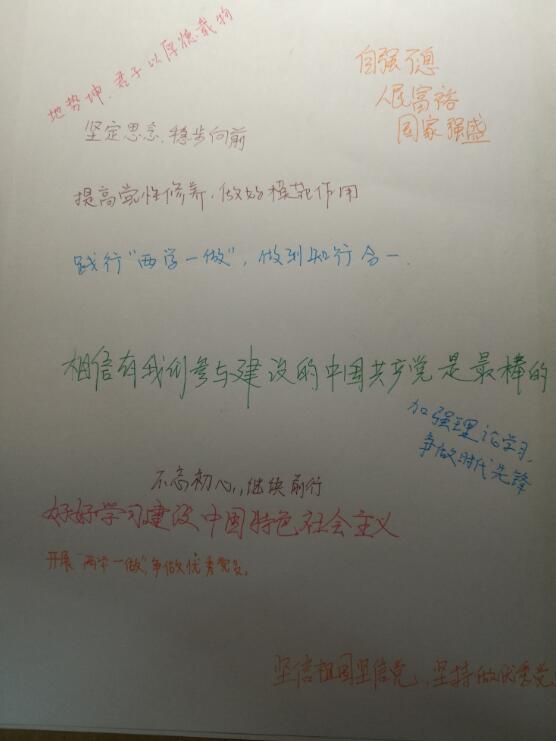 地势坤,君子以厚德载物
自强不息
人民富裕
国家强盛
坚定思念,稳步向前
提高党性修养,做好模范作用
践行"两学一做",做到知行合一.
相信有我们参与建设的中国共产党是最棒的
加强理论学习,
争做时代先锋
不忘初心,继续前行
好好学习建设中国特色社会主义
开展"两学一做",争做优秀党员。
坚信祖国坚信党,坚持做优秀党